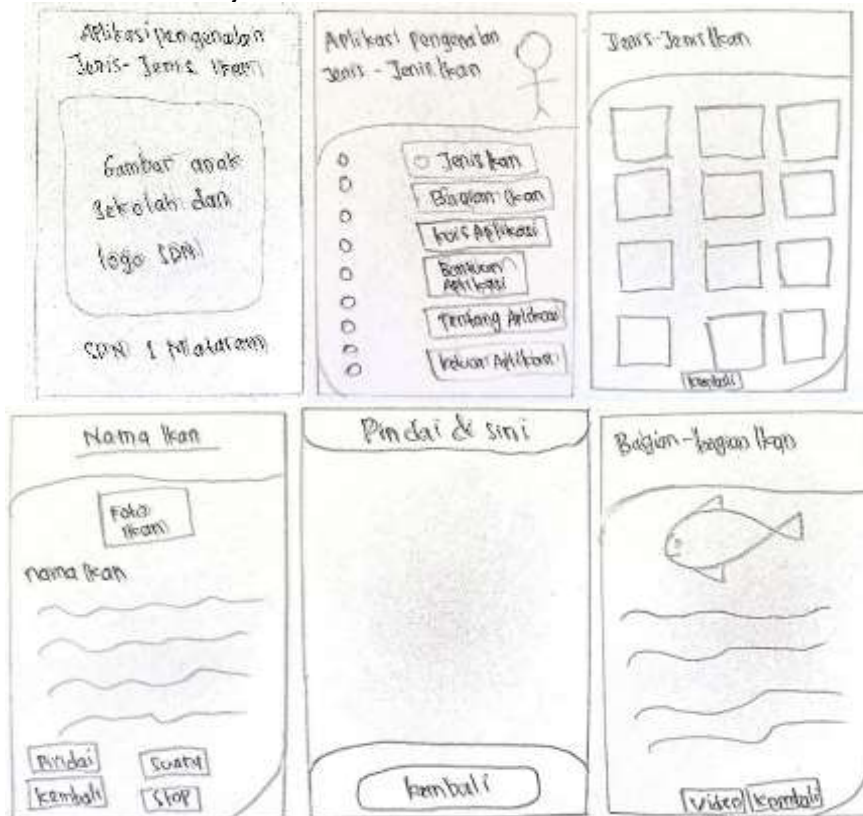 Aplikasi pengenalan
Jenis-Jenis Ikan
Gambar anak
Sekolah dan
logo SDN
SDN 1 Mataram
Aplikasi Pengenalan
Jenis - Jenis Ikan
Jenis Ikan
Bagian Ikan
kuis Aplikasi
Bantuan
Aplikasi
Tentang Aplikasi
keluar Aplikasi
Jenis-Jenis Ikan
kembali
Nama Ikan
Foto
Ikan
nama Ikan
Pindai
Suara
kembali
Stop
Pindai di sini
kembali
Bagian-bagian Ikan
Video
kembali